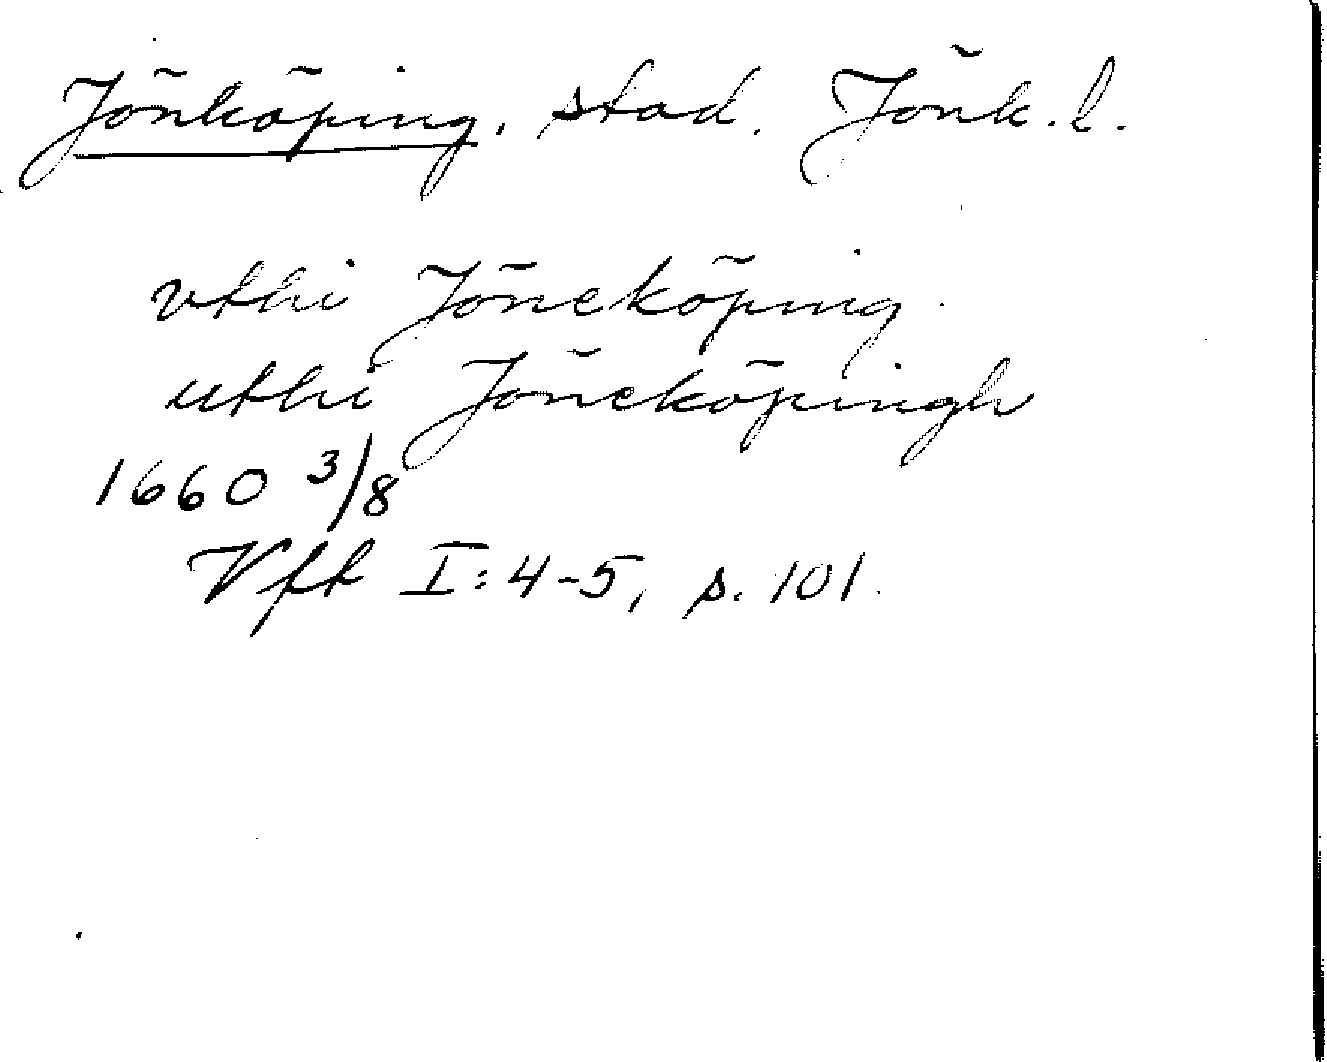 Jönköping, stad. Jönk. l.
vthi Jöneköping.
uthi Jöneköpingh
1660 3/8
Vfk I:4-5, s. 101.